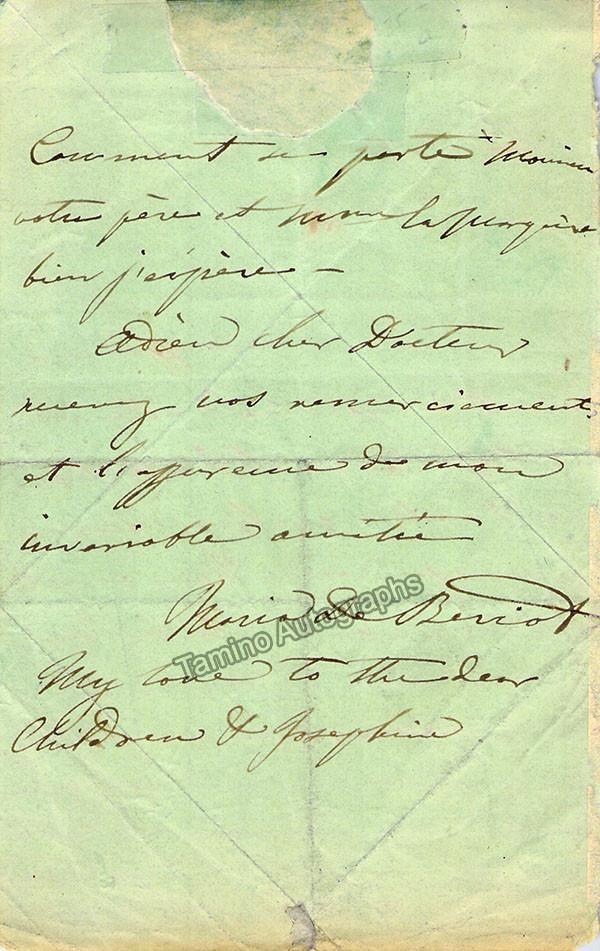 Comment se porte Monsieur
votre père et Mme
bien j'espère –
Adieu cher Docteur
recevez nos remerciements
et l'assurance de mon
invariable amitié
Maria de Beriot
Tamino Autographs
My love to the dear
Children & Josephine